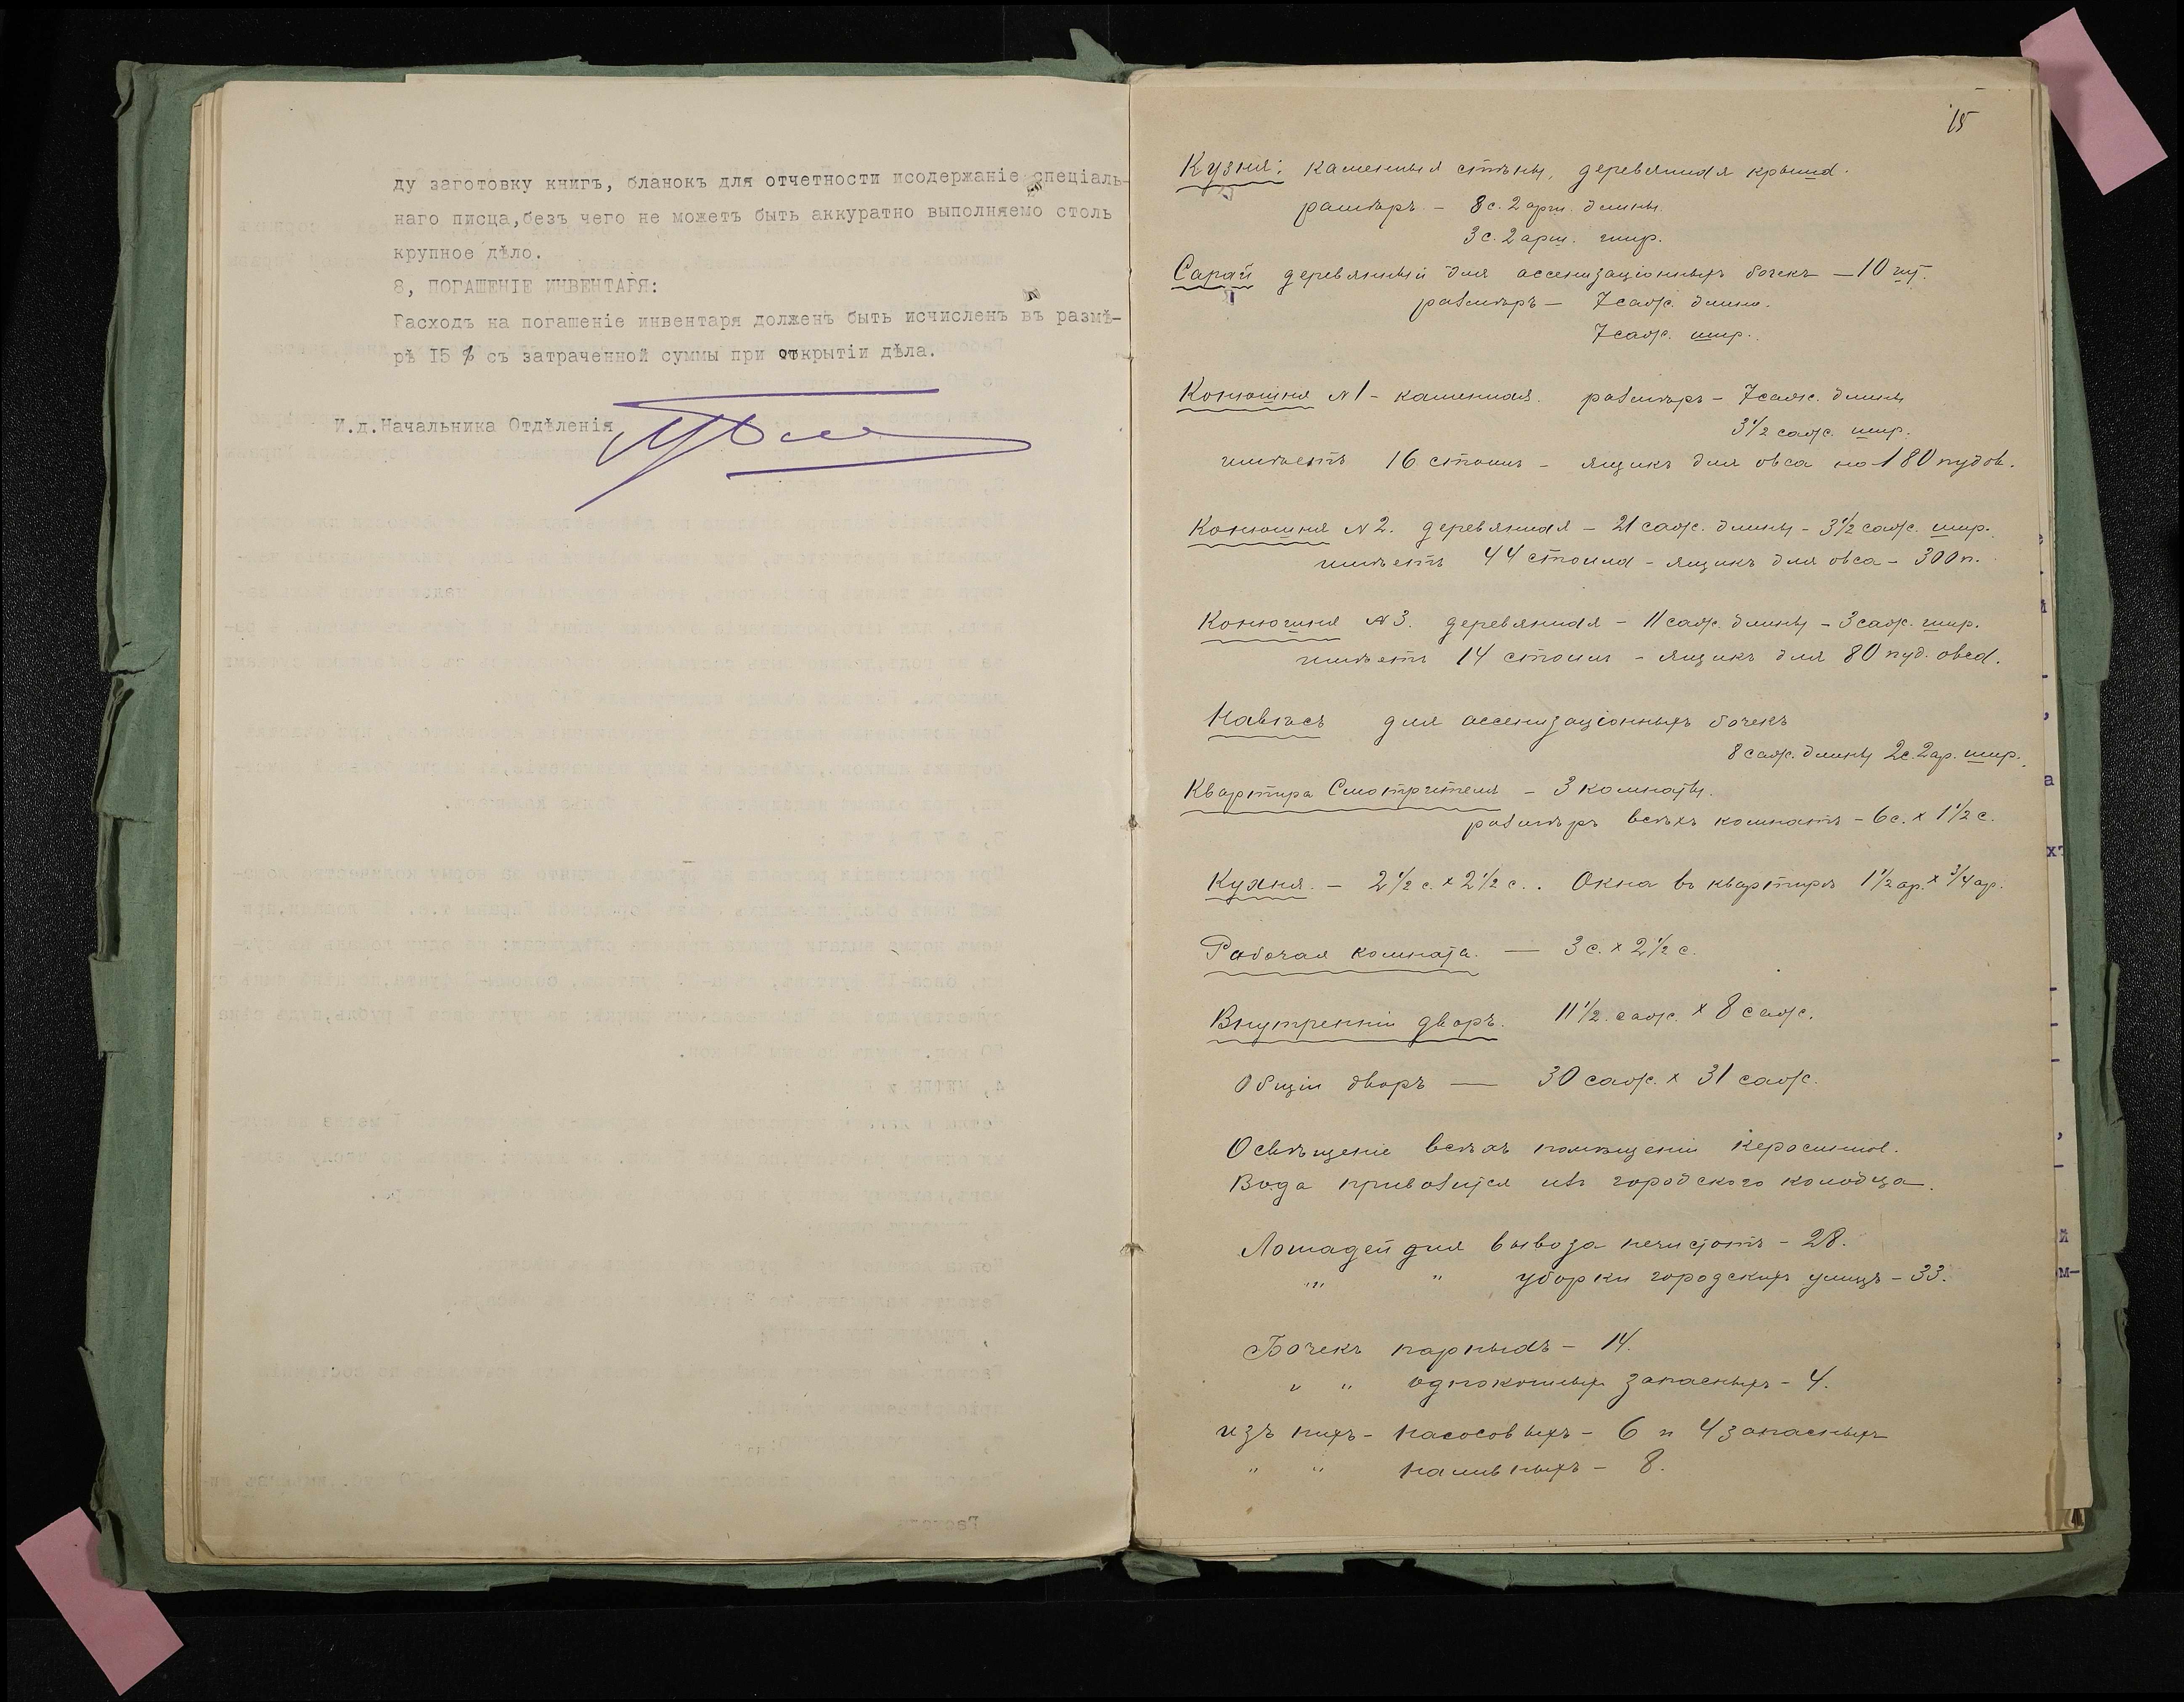 ду заготовку книгъ, бланокъ для отчетности исодержаніе спеціаль-
наго писца,безъ чего не можетъ быть аккуратно выполняемо столь
крупное дѣло.
8, ПОГАШЕНІЕ ИНВЕНТАРЯ:
Расходъ на погашеніе инвентаря долженъ быть исчисленъ въ размѣ-
рѣ I5 % съ затраченной суммы при открытіи дѣла.
И.д.Начальника Отдѣленія
15
Кузня: каменныя стѣны, деревянная крыша.
размѣръ - 8 с. 2 арш. длины.
3 с. 2 арш. шир.
Сарай деревянный для ассенизаціонныхъ бочекъ — 10 шт.
размѣръ — 7 саж. длины.
7 саж. шир.
Конюшня №1 - каменная. размѣръ - 7 саж. длины
3 1/2 саж. шир.
имѣетъ 16 стоилъ - ящикъ для овса на 180 пудов.
Конюшня №2. деревянная - 21 саж. длины - 3 1/2 саж. шир.
имѣетъ 44 стоила - ящикъ для овса - 300 п.
Конюшня №3. деревянная - 11 саж. длины - 3 саж. шир.
имѣетъ 14 стоилъ - ящикъ для 80 пуд. овса.
Навѣсъ для ассенизаціонныхъ бочекъ
8 саж. длины 2 с. 2 ар. шир.
Квартира Смотрителя - 3 комнаты.
размѣръ всѣхъ комнатъ - 6 с. x 1 1/2 с.
Кухня. - 2 1/2 с. x 2 1/2 с.. Окна въ квартирѣ 1 1/2 ар. x 3/4 ар.
Рабочая комната. — 3 с. x 2 1/2 с.
Внутренній дворъ. 11 1/2 саж. x 8 саж.
Общій дворъ — 30 саж. x 31 саж.
Освѣщеніе всѣхъ помѣщеній керосинов.
Вода привозится изъ городского колодца.
Лошадей для вывоза нечистотъ - 28.
" " уборки городскихъ улицъ - 33.
Бочекъ парныхъ - 14.
" " одноконныхъ запасныхъ - 4.
изъ нихъ - насосовыхъ - 6 и 4 запасныхъ
" " наливныхъ - 8.